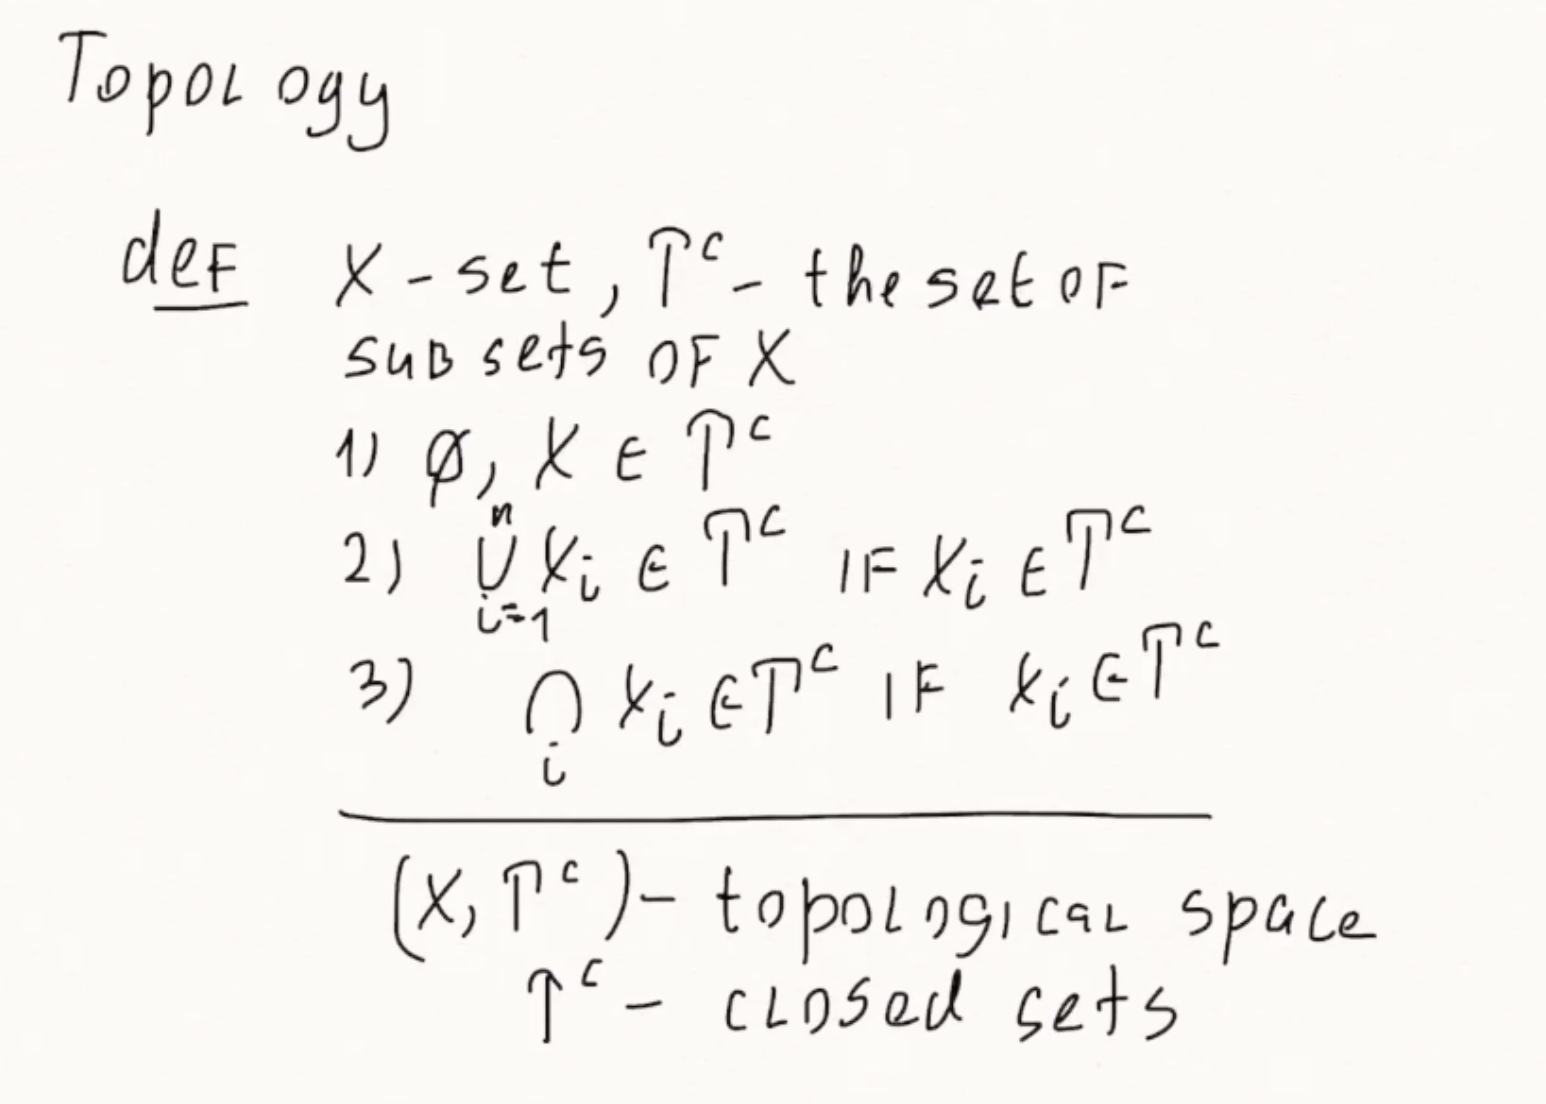 Topology
def X - set, T^c - the set of
subsets of X
1) ∅, X ∈ T^c
2) ⋃_{i=1}^{n} X_i ∈ T^c if X_i ∈ T^c
3) ⋂_i X_i ∈ T^c if X_i ∈ T^c
(X, T^c) - topological space
T^c - closed sets